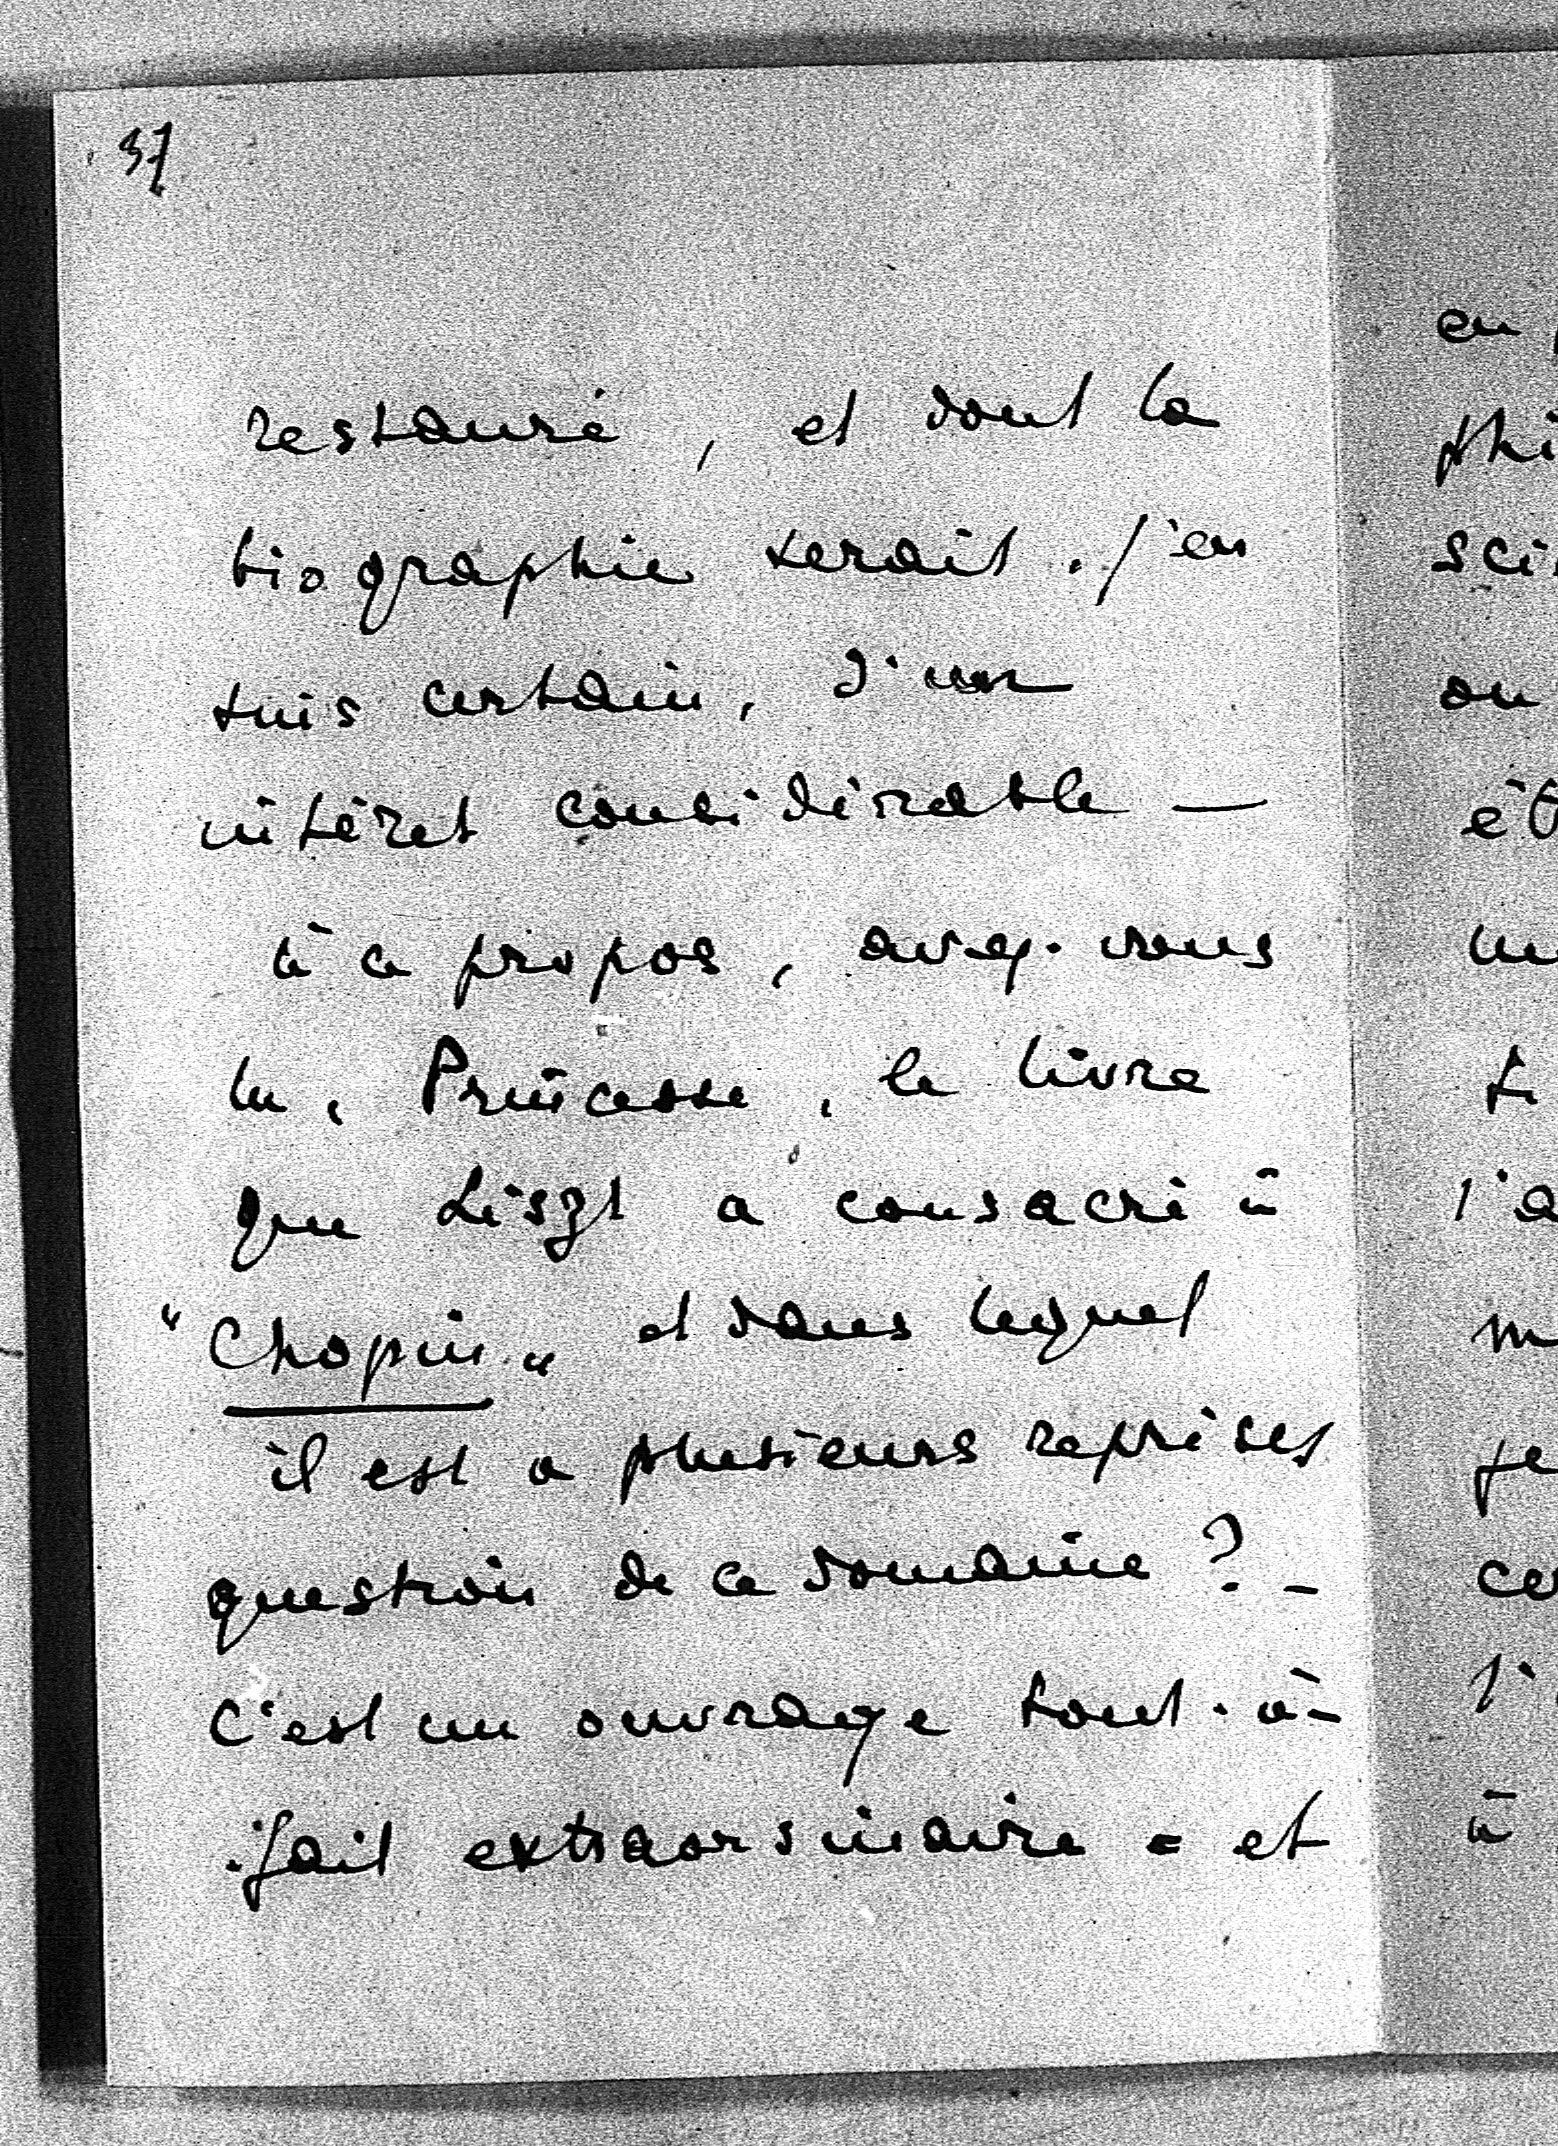 37
restauré, et dont la
biographie serait, j'en
suis certain, d'un
intéret considérable —
à ce propos, avez-vous
lu, Princesse, le livre
que Liszt a consacré à
"Chopin" et dans lequel
il est a plusieurs reprises
question de ce domaine ? -
C'est un ouvrage tout-à-
fait extraordinaire - et
en
phi
sci
ou
êt
un
l'a
m
je
ce
l'
à